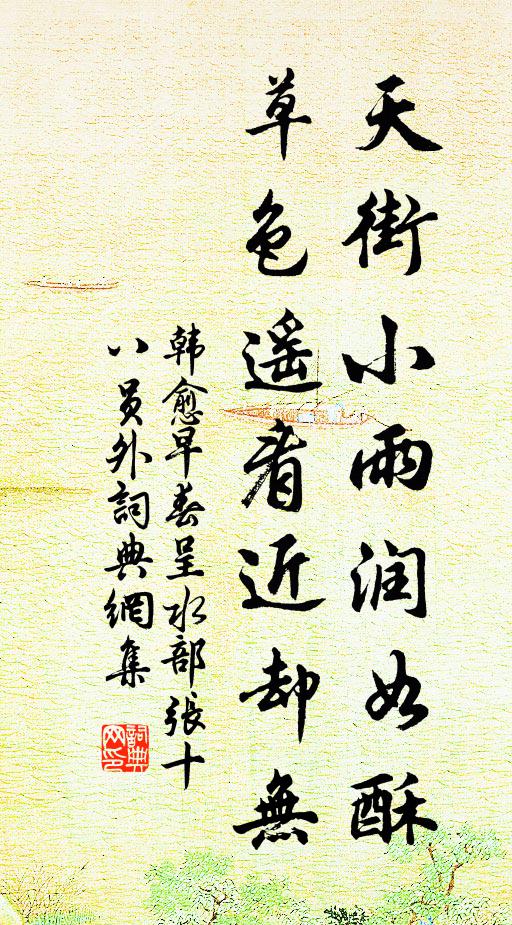 天街小雨润如酥
草色遥看近却無
韩愈早春呈水部張十
八員外詞典網集
詞典网印